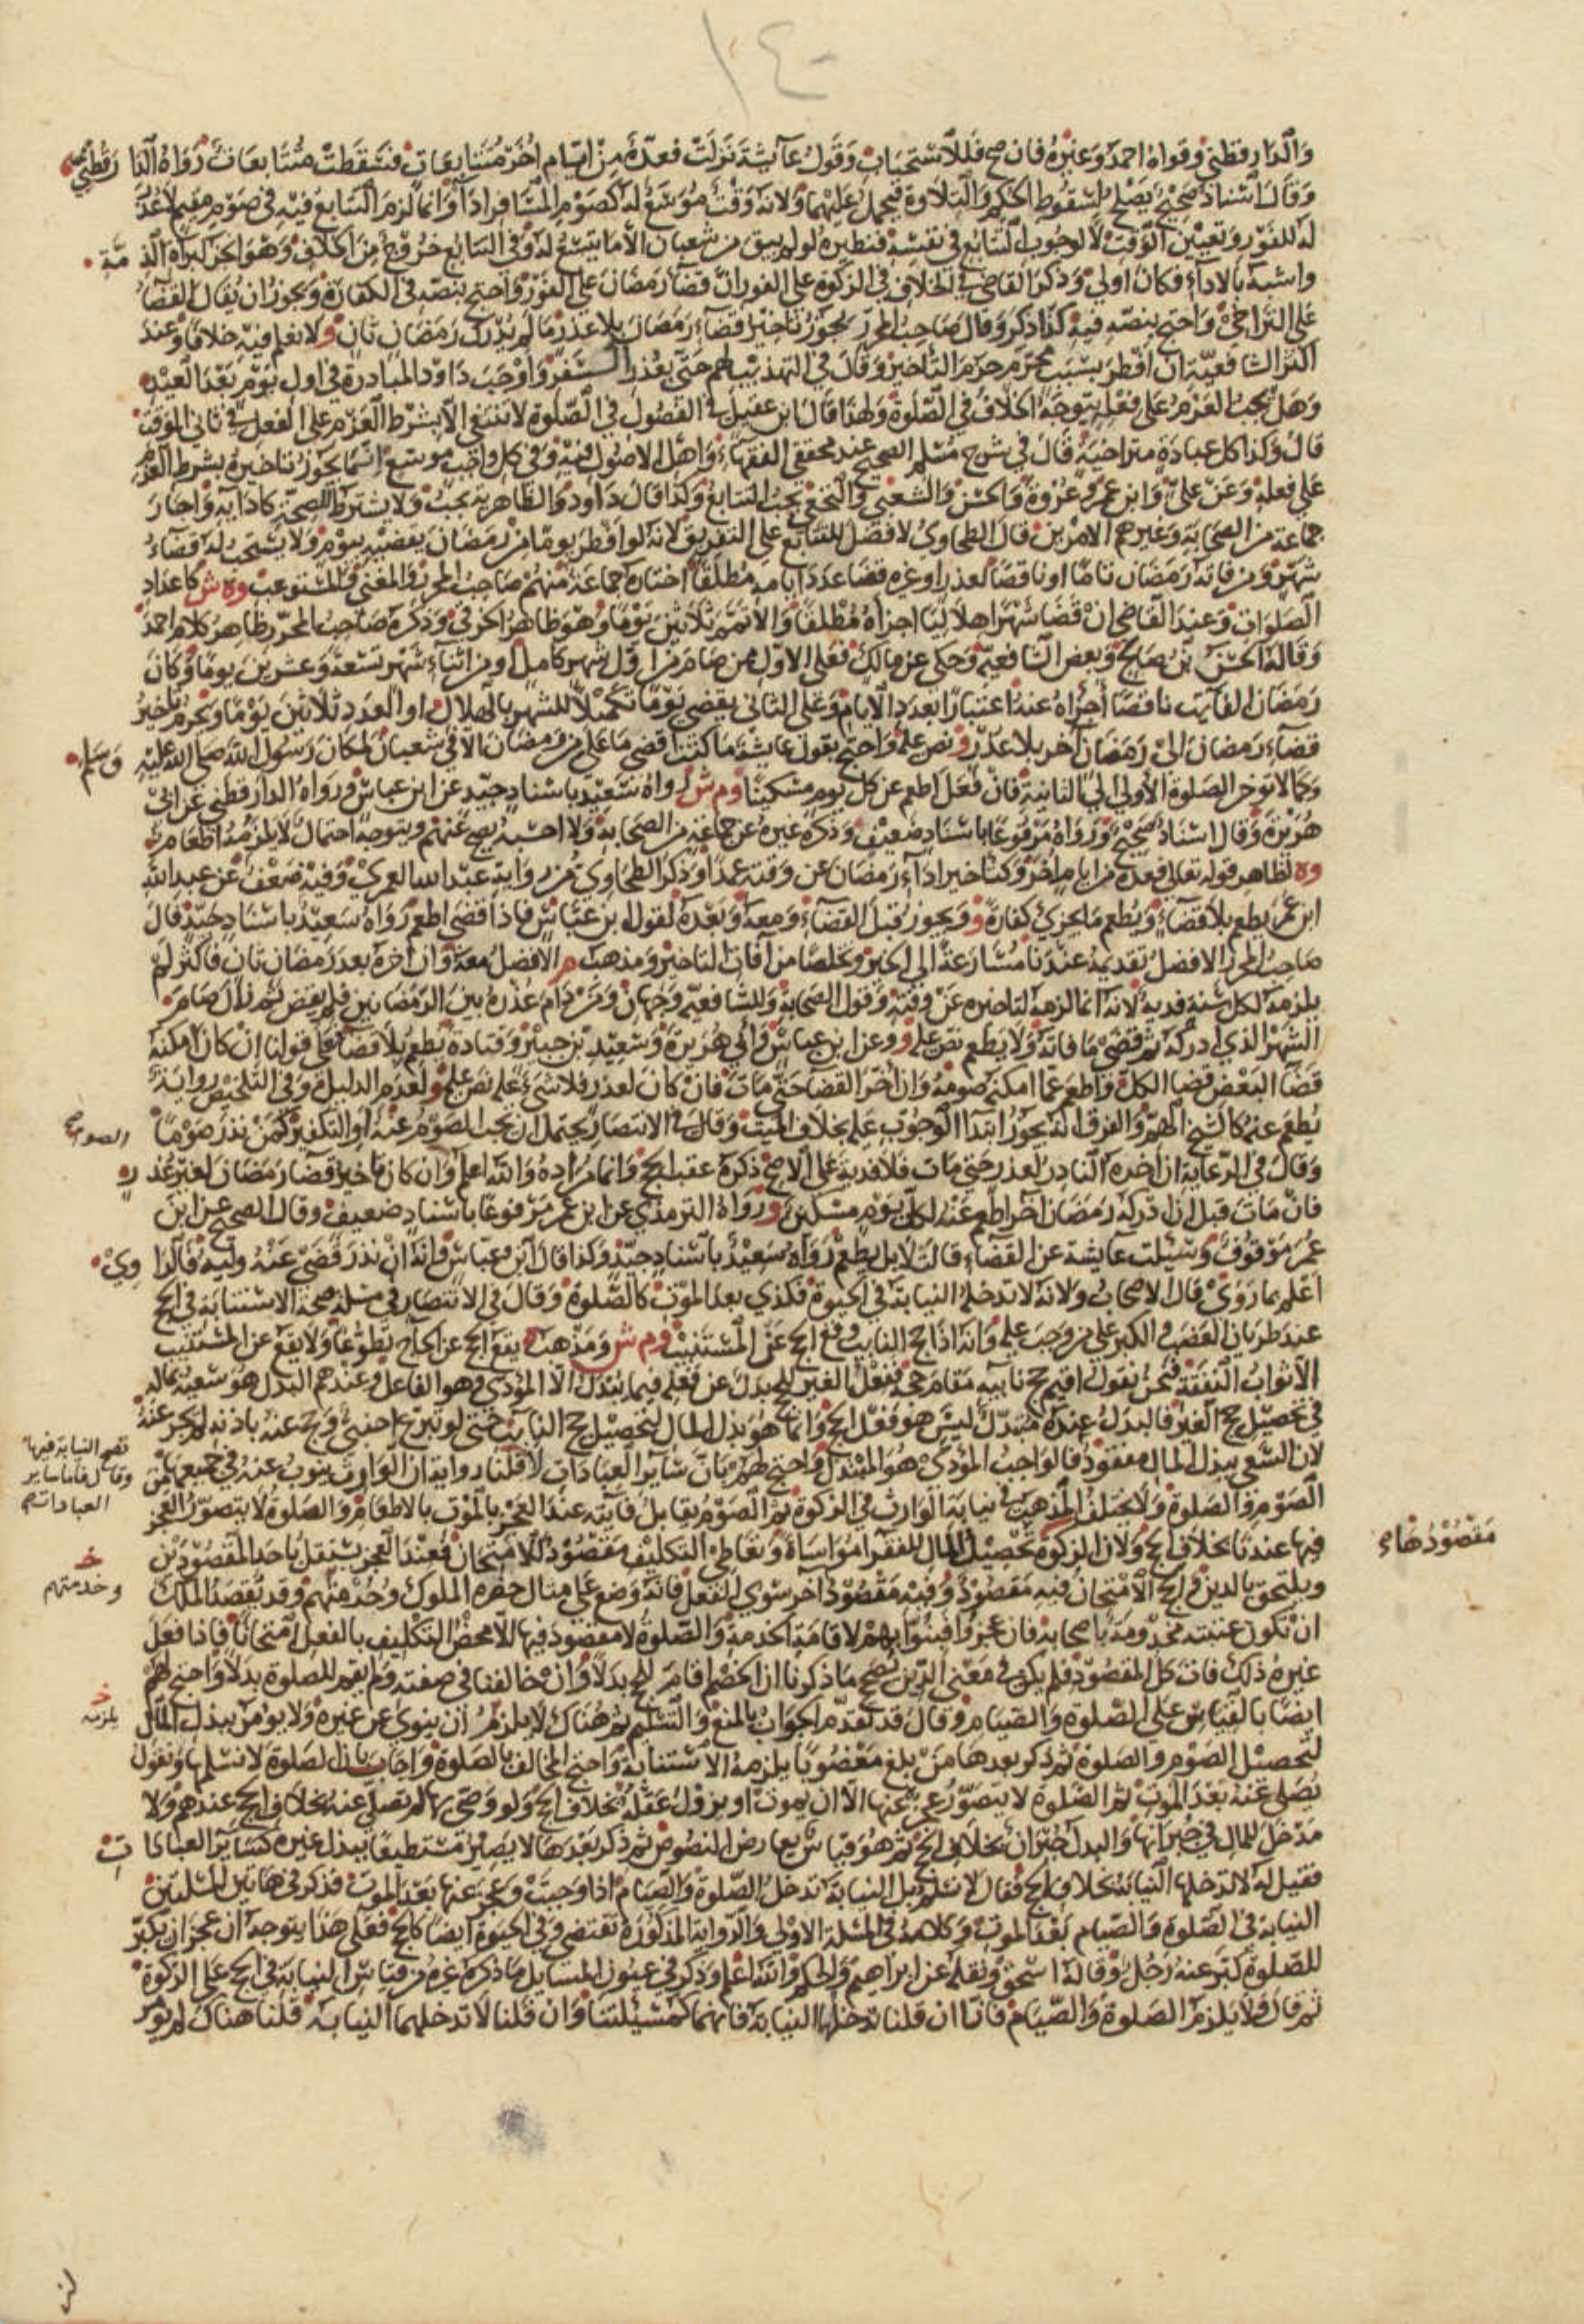 ١٤٠
والدارقطني وقواه احمد وغيره فان صح فللاستحباب وقول عائشة نزلت فعدة من ايام اخر متتابعات فسقطت متتابعات رواه الدارقطني
وقال اسناد صحيح يصلح لسقوط الحكم والتلاوة فيحمل عليهما ولانه وقت موسع له كصوم المسافر اداء وانما لزم التتابع فيه في صوم مقيم لا عذر
له للفور وتعيين الوقت لا لوجوب التتابع في نفسه فنظيره لو لم يبق من شعبان الا ما يتسع له وفي التتابع خروج من الخلاف وهو انجز لبراة الذمة
واشبه بالاداء فكان اولى وذكر القاضي في الخلاف في الزكوة على الفور ان قضاء رمضان على الفور واحتج بنصه في الكفارة ويجوز ان يقال القضاء
على التراخي واحتج بنصه فيه كذا ذكر وقال صاحب المحرر يجوز تاخير قضاء رمضان بلا عذر ما لم يدرك رمضان ثان ولا نعلم فيه خلافا وعند
اكثر الشافعية ان افطر بسبب محرم حرم التأخير وقال في التهذيب لهم حتى بعذر السفر واوجب داود المبادرة في اول يوم بعد العيد
وهل يجب العزم على فعله يتوجه الخلاف في الصلوة ولهذا قال ابن عقيل في الفصول في الصلوة لا تنتفي الا بشرط العزم على الفعل في ثاني الوقت
قال وكذا كل عبادة متراخية قال في شرح مسلم الصحيح عند محققي الفقهاء واهل الاصول فيه وفي كل واجب موسع انما يجوز تاخيره بشرط العزم
على فعله وعن علي وابن عمر وعروة والحسن والشعبي والنخعي يجب التتابع وكذا قال داود والظاهرية يجب ولا يشترط للصحة كاداية واختار
جماعة من الصحابة وغيرهم الامرين قال الطحاوي لا فضل للتتابع على التفريق لانه لو افطر يوما من رمضان يقضيه بيوم ولا يستحب له قضاء
شهر ومن فاته رمضان تاما او ناقصا لعذر او غيره قضا عدد ايامه مطلقا اختاره جماعة منهم صاحب المحرر والمغني والمستوعب وه ش كاعداد
الصلوات وعند القاضي ان قضا شهرا هلاليا اجزاه مطلقا والا تمم ثلاثين يوما وهو ظاهر الخرقي وذكره صاحب المحرر ظاهر كلام احمد
وقاله الحسن بن صالح وبعض الشافعية وحكي عن مالك فعلى الاول من صام من اول شهر كامل او من اثناء شهر تسعة وعشرين يوما وكان
رمضان الفايت ناقصا أجزاه عنه اعتبارا بعدد الايام وعلى الثاني يقضي يوما تكميلا للشهر بالهلال او العدد ثلاثين يوما ويحرم تأخير
قضاء رمضان الى رمضان آخر بلا عذر نص عليه واحتج بقول عايشة ما كنت اقضي ما علي من رمضان الا في شعبان لمكان رسول الله صلى الله عليه وسلم
وكما لا تؤخر الصلوة الاولى الى الثانية فان فعل اطعم عن كل يوم مسكينا وم ش رواه سعيد باسناد جيد عن ابن عباس ورواه الدارقطني عن ابي
هريرة وقال اسناد صحيح ورواه مرفوعا باسناد ضعيف وذكره غيره عن جماعة من الصحابة ولا احسبه يصح عنهم ويتوجه احتمال لا يلزمه اطعام
وه لظاهر قوله تعالى فعدة من ايام اخر وكتاخير اداء رمضان عن وقته عمدا وذكر الطحاوي من رواية عبد الله العمري وفيه ضعف عن عبد الله
ابن عمر يطعم بلا قضاء ويطعم ما يجزئ كفارة و ويجوز قبل القضاء ومعه وبعده لقول ابن عباس فاذا قضى اطعم رواه سعيد باسناد جيد قال
صاحب المحرر الافضل تقديمه عندنا مسارعة الى الخير وتخلصا من آفات التاخير ومذهب م الافضل معه وان اخره بعد رمضان ثان فاكثر لم
يلزمه لكل سنة فدية لانه انما لزمه لتاخيره عن وقته وقول الصحابة وللشافعية وجهان ومن دام عذره بين الرمضانين فلم يقض ثم زال صام
الشهر الذي ادركه ثم قضى ما فاته ولا يطعم نص عليه و وعن ابن عباس وابي هريرة وسعيد بن جبير وقتادة يطعم بلا قضاء فعلى قولنا ان كان امكنه
قضا البعض قضا الكل واطعم عما امكنه صومه وان اخر القضا حتى مات فان كان لعذر فلا شيء عليه نص عليه و لعدم الدليل وفي التلخيص رواية
يطعم عنه كالشيخ الهرم والفرق انه يجوز ابتدا الوجوب عليه بخلاف الميت وقال في الانتصار يحتمل ان يجب الصوم عنه او التكفير كمن نذر صوما
وقال في الرعاية ان اخره الناذر لعذر حتى مات فلا فدية على الاصح ذكره عقب الحج وانما مراده والله اعلم وان كان تاخير قضا رمضان لغير عذر
فان مات قبل ان ادركه رمضان اخر اطعم عنه لكل يوم مسكين و ورواه الترمذي عن ابن عمر مرفوعا باسناد ضعيف وقال الصحيح عن ابن
عمر موقوف وسئلت عايشة عن القضاء قالت لا بل يطعم رواه سعيد باسناد جيد وكذا قال ابن عباس وانه ان نذر قضى عنه وليه قالوا وي
اعلم بما روى قال الاصحاب ولانه لا تدخله النيابة في الحيوة فكذي بعد الموت كالصلوة وقال في الانتصار في مسئلة صحة الاستنابة في الحج
عند طريان العضب والكبر على من وجب عليه وانه اذا حج النايب وقع الحج عن المستنيب وم ش ومذهب ه يقع الحج عن الحاج تطوعا ولا يقع عن المستنيب
الا ثواب النفقة فنحن نقول اقيم حج نايبه مقام حجه ففعل الغير للحج بدل عن فعله فيما يبتدل الا المؤدي وهو الفاعل وعندهم البدل هو سعيه بماله
في تحصيل حج الغير فالبدل عنده مبتدل ليس هو فعل الحج وانما هو بذل المال لتحصيل حج النايب حتى لو تبرع اجنبي وحج عنه باذنه لم يجز عنه
لان السعي ببذل المال مفقود فالواجب المؤدى هو المبتدل واحتج لهم بان ساير العبادات لا قلنا رواية ان الوارث ينوب عنه في جميعها من
الصوم والصلوة ولا يختلف المذهب في نيابة الوارث في الزكوة ثم الصوم يقابل فايته عند العجز بالموت بالاطعام والصلوة لا يتصور العجز
فيها عندنا بخلاف الحج ولان الزكوة تحصيل المال للفقرا مواساة وتعاطي التكليف مقصود للامتحان فعند العجز يستقل باحد المقصودين
ويلتحق بالدين في الحج الامتحان فيه مقصود وفيه مقصود آخر سوى الفعل فانه وضع على مثال حضرة الملوك وخدمتهم وقد يقصد الملك
ان تكون عتبته مخدومة باصحابه فان عجزوا فبنوابهم لاقامة الخدمة والصلوة لا مقصود فيها الا محض التكليف بالفعل امتحانا فاذا فعل
غيره ذلك فات كل المقصود فلم يكن في معنى الدين يصح ما ذكرنا ان الخصم اقام الحج بدلا وان خالفنا في صفته ولم يقم للصلوة بدلا واحتج لهم
ايضا بالقياس على الصلوة والصيام وقال قد تقدم الجواب بالمنع والتسليم ثم هناك لا يلزم ان ينوي عن غيره ولا يومن ببذل المال
لتحصيل الصوم والصلوة ثم ذكر بعدها من بلغ معضوبا يلزمه الاستنابة واحتج المخالف بالصلوة واجاب بان الصلوة لا نسلمها ونقول
يصلى عنه بعد الموت ثم الصلوة لا يتصور عجزه عنها الا ان يموت او يزول عقله بخلاف الحج ولو وصى بها لم تصل عنه بخلاف الحج عندهم ولا
مدخل للمال في جبرانها والبدل جبران بخلاف الحج ثم هو قياس يعارض النصوص ثم ذكر بعدها لا يصير مستطيعا ببذل غيره كساير العبادات
فقيل له لا تدخلها النيابة بخلاف الحج فقال لا نسلم بل النيابة تدخل الصلوة والصيام اذا وجبت وعجز عنها بعد الموت فذكر في هاتين المسئلتين
النيابة في الصلوة والصيام بعد الموت وكلامه في المسئلة الاولى والرواية المذكورة تقتضي وفي الحيوة ايضا كالحج فعلى هذا يتوجه ان عجز ان يكبر
للصلوة كبر عنه رجل وقاله اسحق ونقله عن ابراهيم والحكم والله اعلم وذكر في عيون المسايل ما ذكره غيره من قياس النيابة في الحج على الزكوة
ثم قال ولا يلزم الصلوة والصيام فانا ان قلنا تدخلها النيابة فانهما كمسئلتنا وان قلنا لا تدخلهما النيابة قلنا هناك لم يجز
الصوم
تصح النيابة فيها
وقال فاما ساير
العبادات
مقصودهاء
خ
وخدمتهم
خ
يلزمه